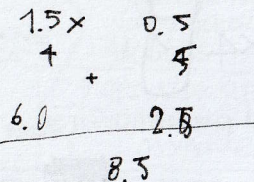 1.5 x 0.5
4 + 5
6.0 2.5
8.5